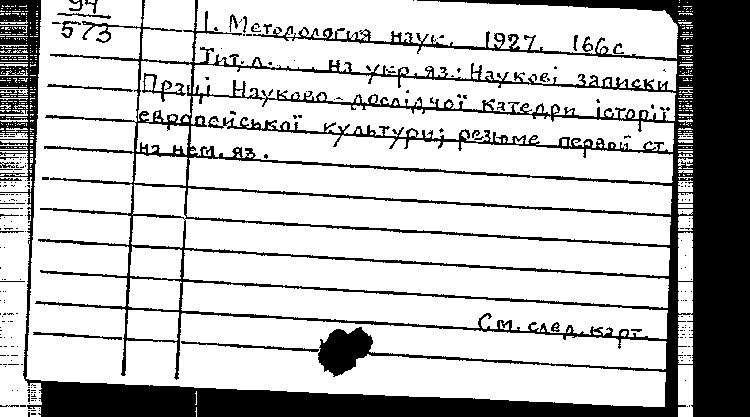 94
573
1. Методология наук. 1927. 166с.
Тит. л. ... на укр. яз.: Наукові записки
Праці Науково-дослідчої катедри історії
европейської культури; резюме первой ст.
на нем. яз.
См. след. карт.